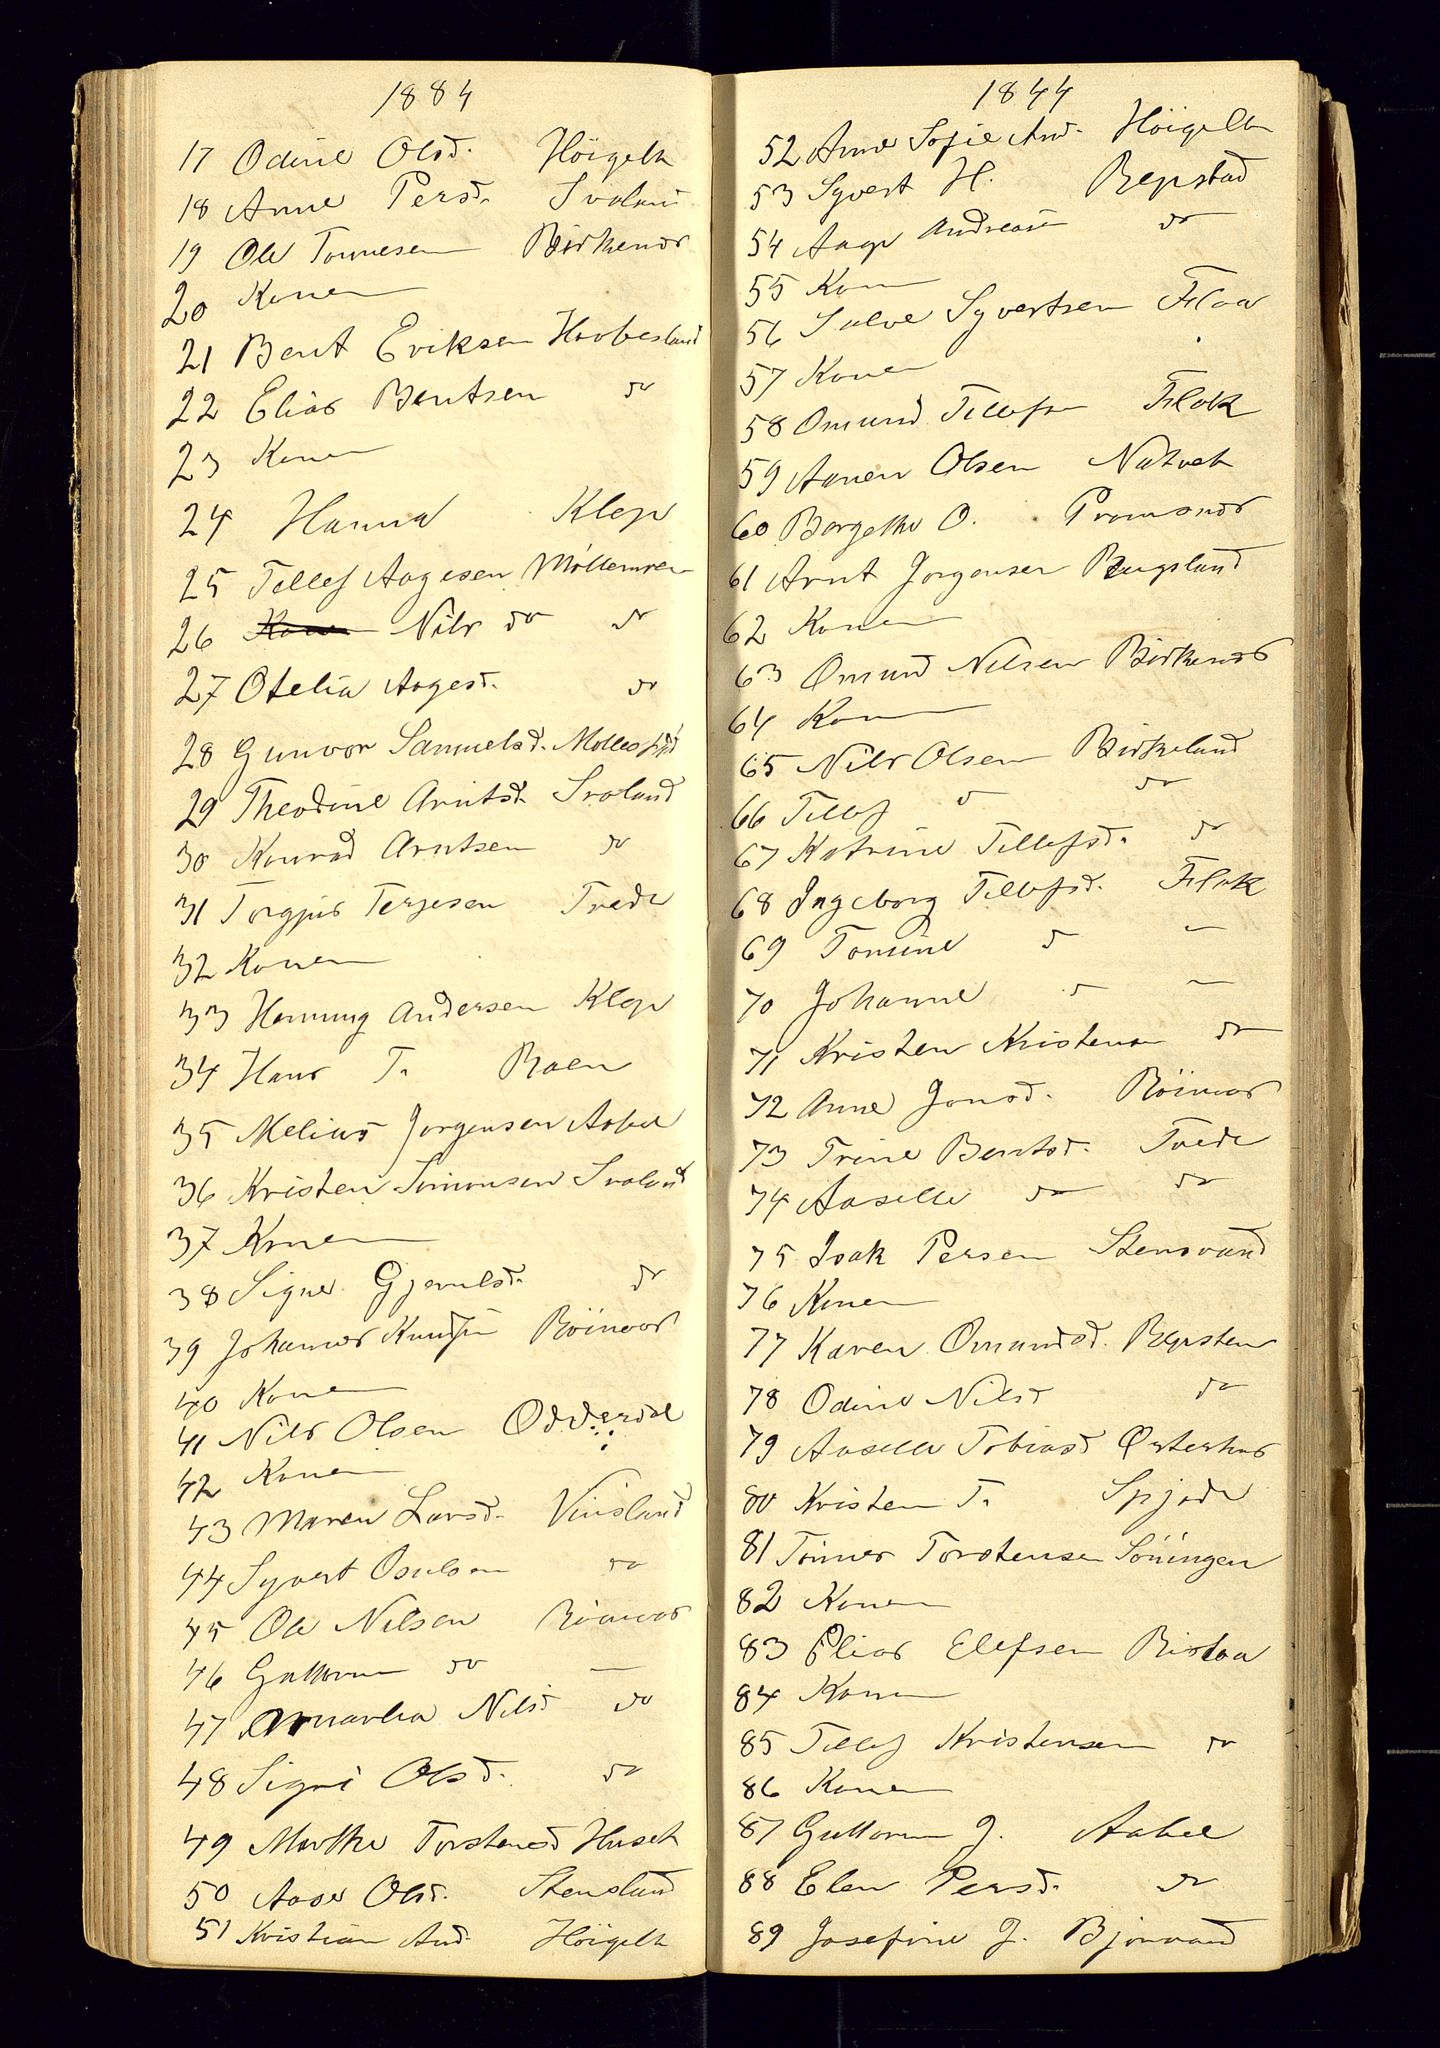 1884
17 Odine Olsd. Höigelt
18 Anne Persd. Svaland
19 Ole Tønnesen Birkenes
20 Konen
21 Bent Eriksen Hovbesland
22 Elias Bentsen do
23 Konen
24 Hanna Klep
25 Tellef Aagesen Möllemren
26 Nils do do
27 Otelia Aagesd. do
28 Gunvor Samuelsd.
29 Theodine Arntsd. Svaland
30 Konrad Arntsen do
31 Torgjus Terjesen Tvede
32 Konen
33 Henning Andersen Klep
34 Hans T. Roen
35 Melius Jorgensen Aabel
36 Kristen Simonsen Svaland
37 Konen
38 Signe Gjerulsd. do
39 Johannes Knudsen Röinaas
40 Konen
41 Nils Olsen Odderdal
42 Konen
43 Maren Larsd. Vinsland
44 Syvert Osulsen do
45 Ole Nilsen Röinaas
46 Guttorm do —
47 Nilsd do
48 Signe Olsd. do
49 Marthe Torstensd Huset
50 Aase Olsd. Stensland
51 Kristian And. Höigelt
1844
52 Anne Sofie And. Höigelt
53 Syvert H. Repstad
54 Aage Andreasen do
55 Konen
56 Salve Syvertsen Flaa
57 Konen
58 Omund Tellefsen Flak
59 Aanen Olsen Natvet
60 Borgethe O.
61 Arnt Jorgensen Rugsland
62 Konen
63 Omund Nilsen Birkenes
64 Konen
65 Nils Olsen Birkeland
66 Tellef d do
67 Katrine Tellefsd. do
68 Ingeborg Tellefsd. Flak
69 Tomine d —
70 Johanne d —
71 Kristen Kristensen do
72 Anne Jonsd. Röinaas
73 Trine Bentsd. Tvede
74 Aaselle do do
75 Isak Persen Stensvand
76 Konen
77 Karen Omundsd. Repsten
78 Odine Nilsd do
79 Aaselle Tobiasd Østerhus
80 Kristen T. Spjode
81 Tönnes Torstensen Söningen
82 Konen
83 Elias Elefsen Rislaa
84 Konen
85 Tellef Kristensen do
86 Konen
87 Guttorm J. Aabel
88 Elen Persd. do
89 Josefine J. Bjorvand